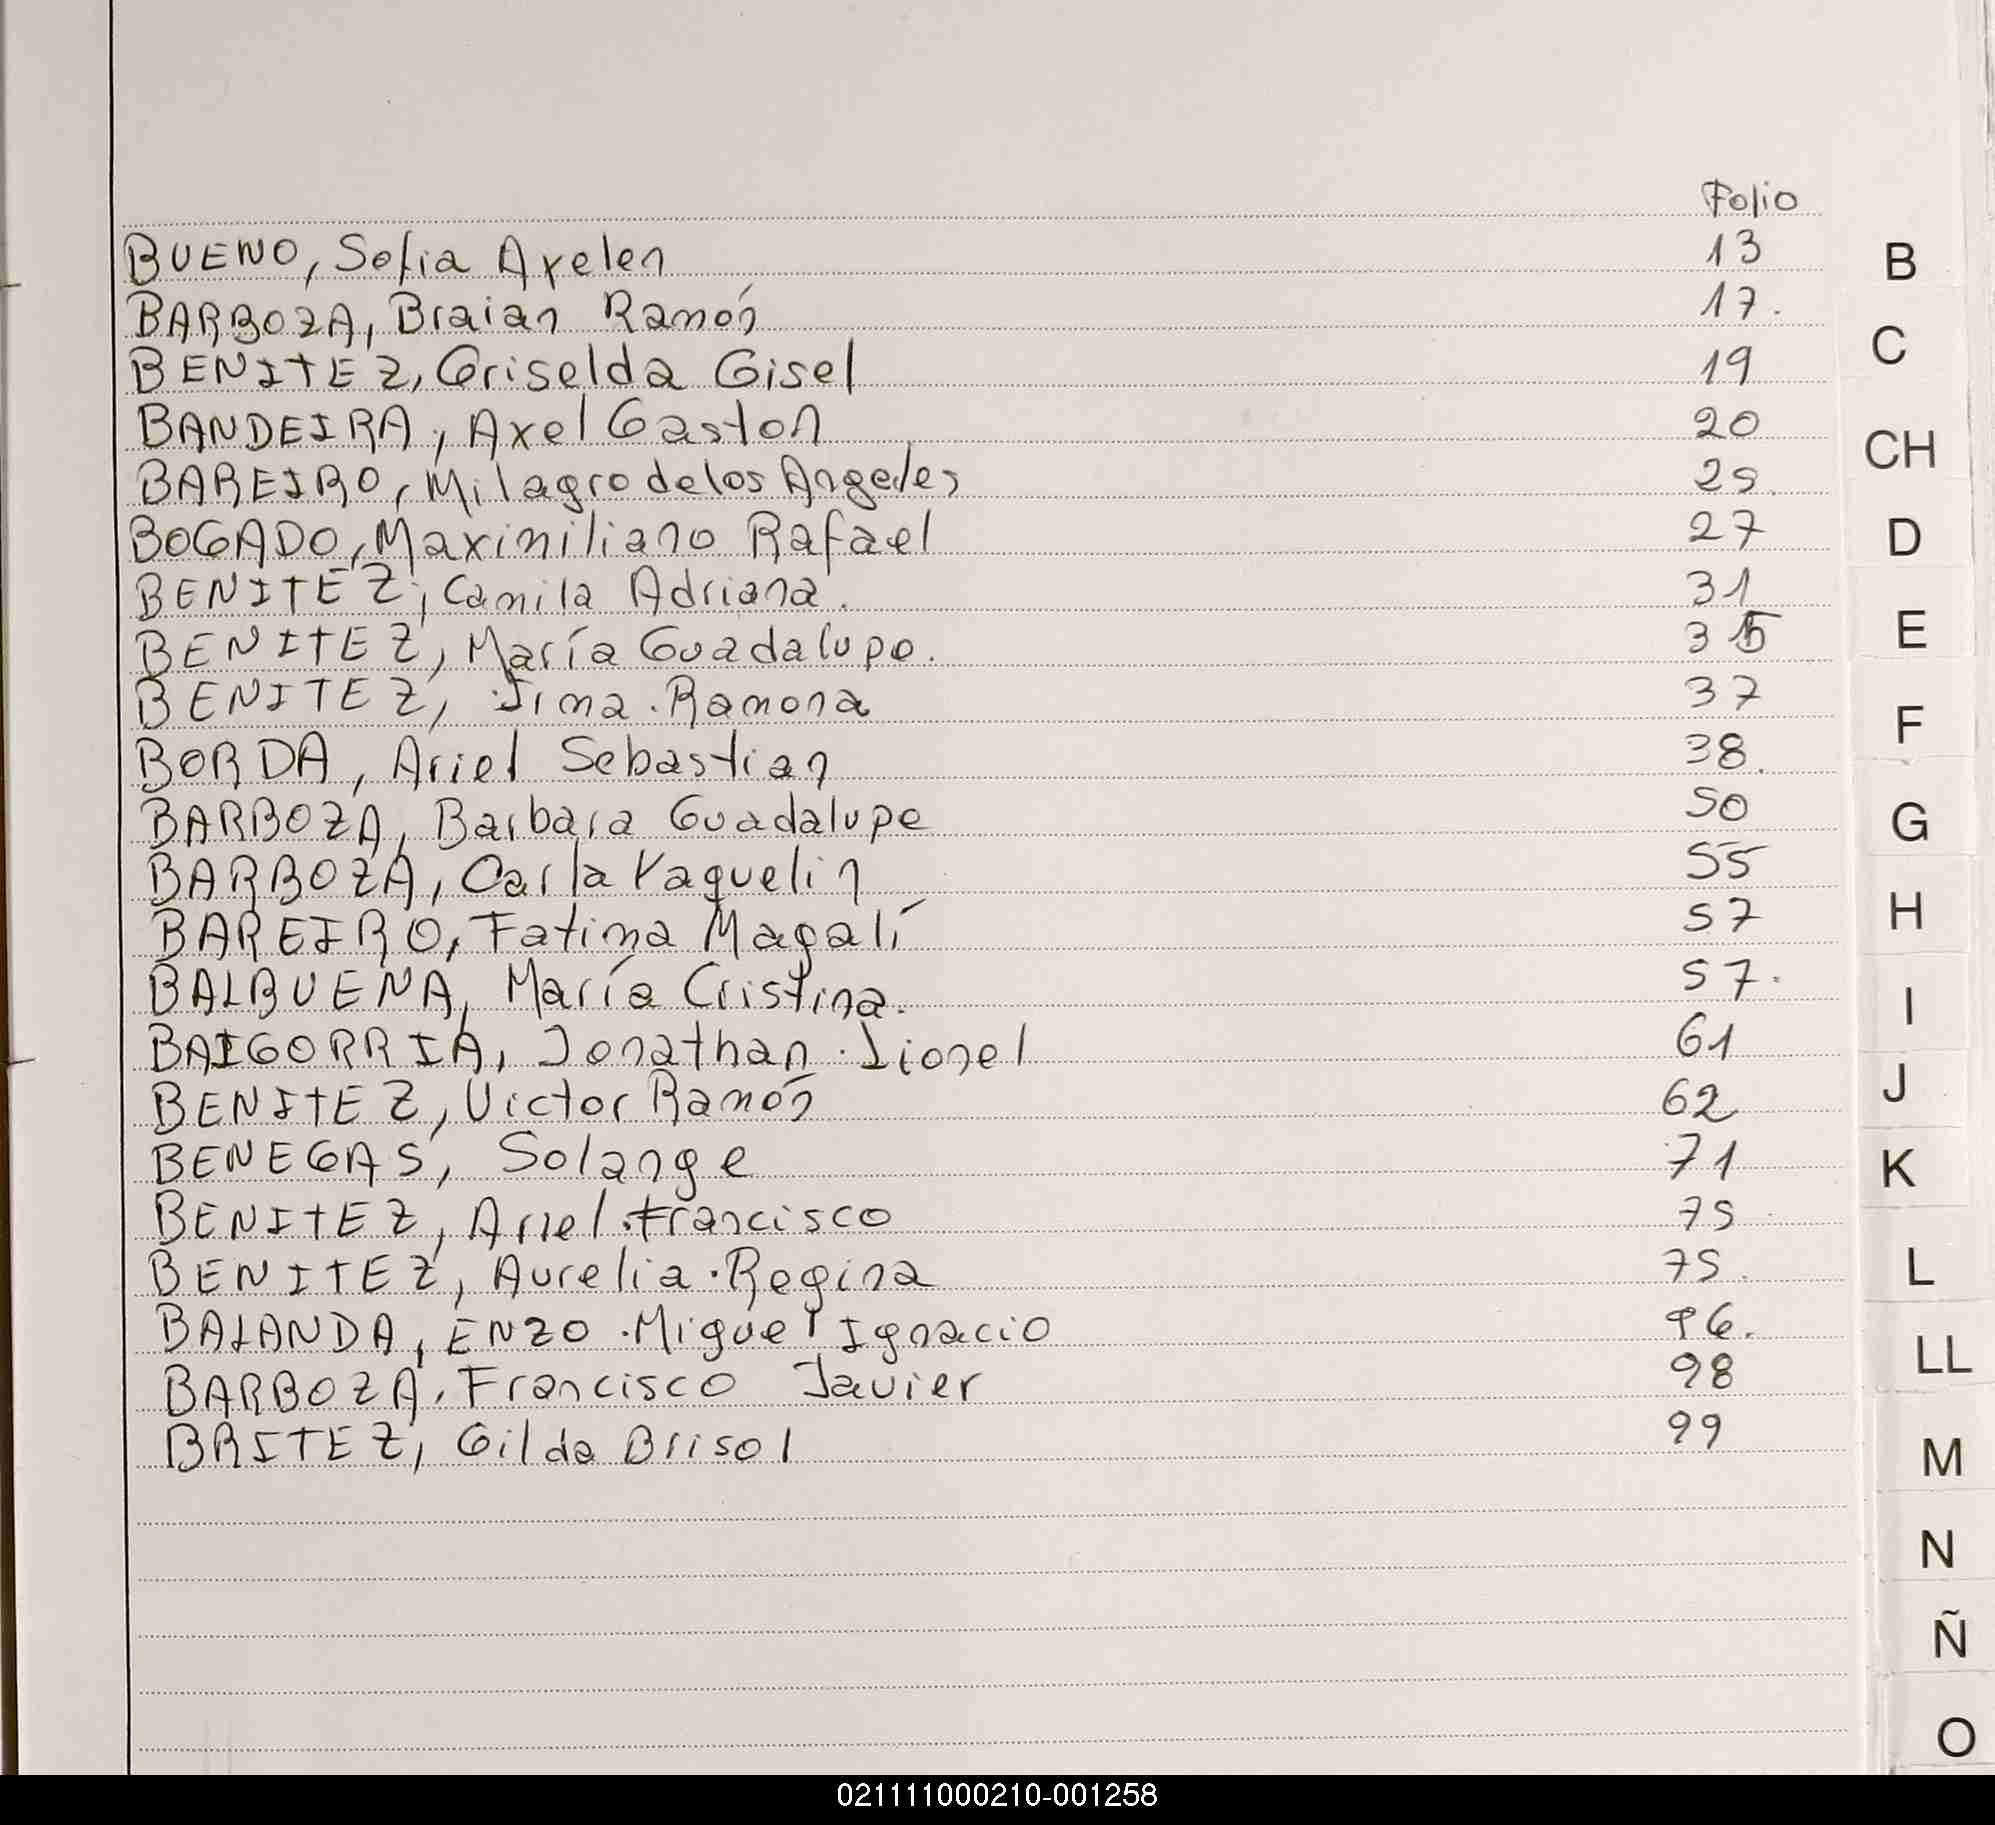 Folio
BUENO, Sofia Axelen 13 B
BARBOZA, Braian Ramón 17.
BENITEZ, Griselda Gisel 19 C
BANDEIRA, Axel Gaston 20
BAREIRO, Milagro de los Angeles 25. CH
BOGADO, Maximiliano Rafael 27 D
BENITEZ, Camila Adriana. 31
BENITEZ, María Guadalupe. 35 E
BENITEZ, Irma Ramona 37
BORDA, Ariel Sebastian 38. F
BARBOZA, Barbara Guadalupe 50 G
BARBOZA, Carla Yaquelin 55
BAREIRO, Fatima Magalí 57 H
BALBUENA, María Cristina. 57. I
BAIGORRIA, Jonathan Lionel 61
BENITEZ, Victor Ramón 62 J
BENEGAS, Solange 71 K
BENITEZ, Ariel Francisco 75
BENITEZ, Aurelia Regina 75. L
BALANDA, ENZO Miguel Ignacio 96. LL
BARBOZA, Francisco Javier 98
BRITEZ, Gilda Brisol 99 M
N
Ñ
O
021111000210-001258